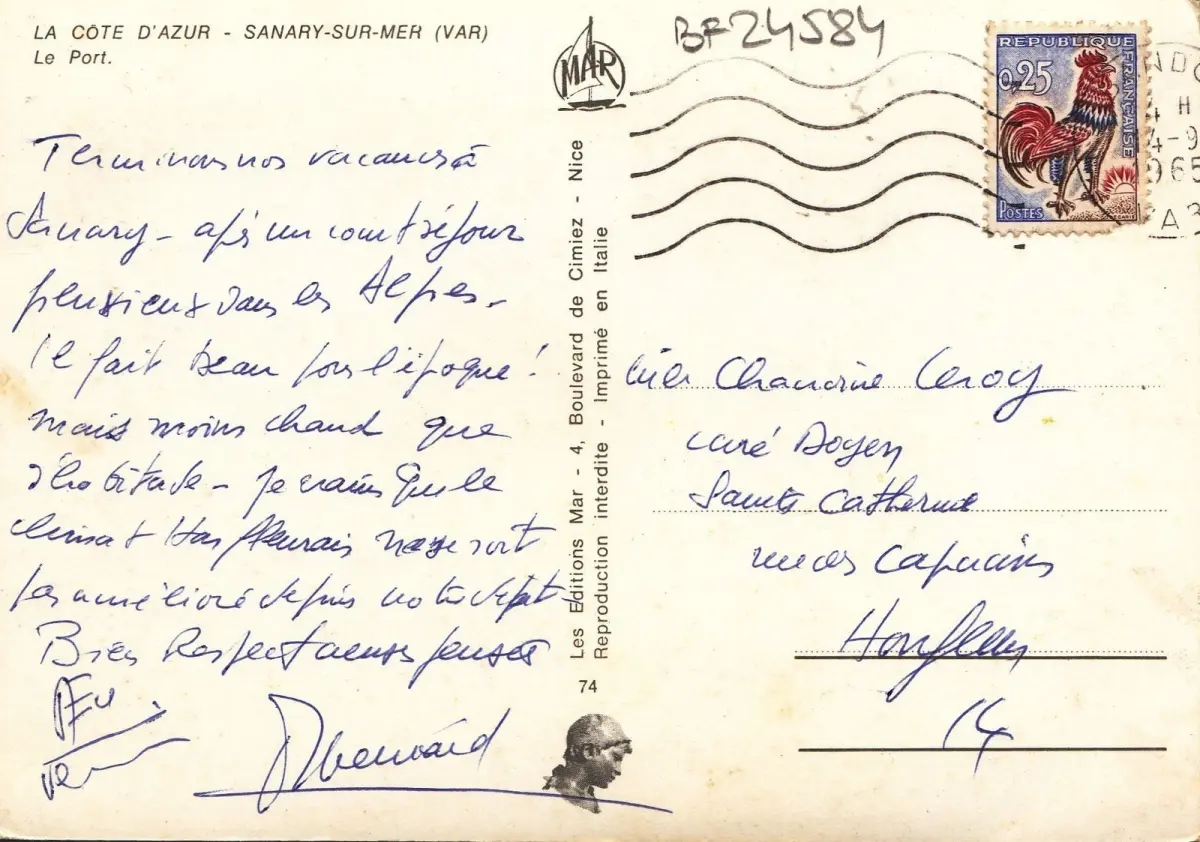 LA CÔTE D'AZUR - SANARY-SUR-MER (VAR)
Le Port.
MAR
BF24584
REPUBLIQUE FRANÇAISE
0,25
POSTES
4-9
1965
Terminons nos vacances à
Sanary - après un court séjour
pluvieux dans les Alpes.
il fait beau pour l'époque!
mais moins chaud que
d'habitude - je crains que le
climat Honfleurais ne se soit
pas amélioré depuis notre départ-
Bien Respectueuses pensées
Les Editions Mar - 4, Boulevard de Cimiez - Nice
Reproduction interdite - Imprimé en Italie
74
Chanoine Leroy
curé Doyen
Sainte Catherine
rue des Capucins
Honfleur
14